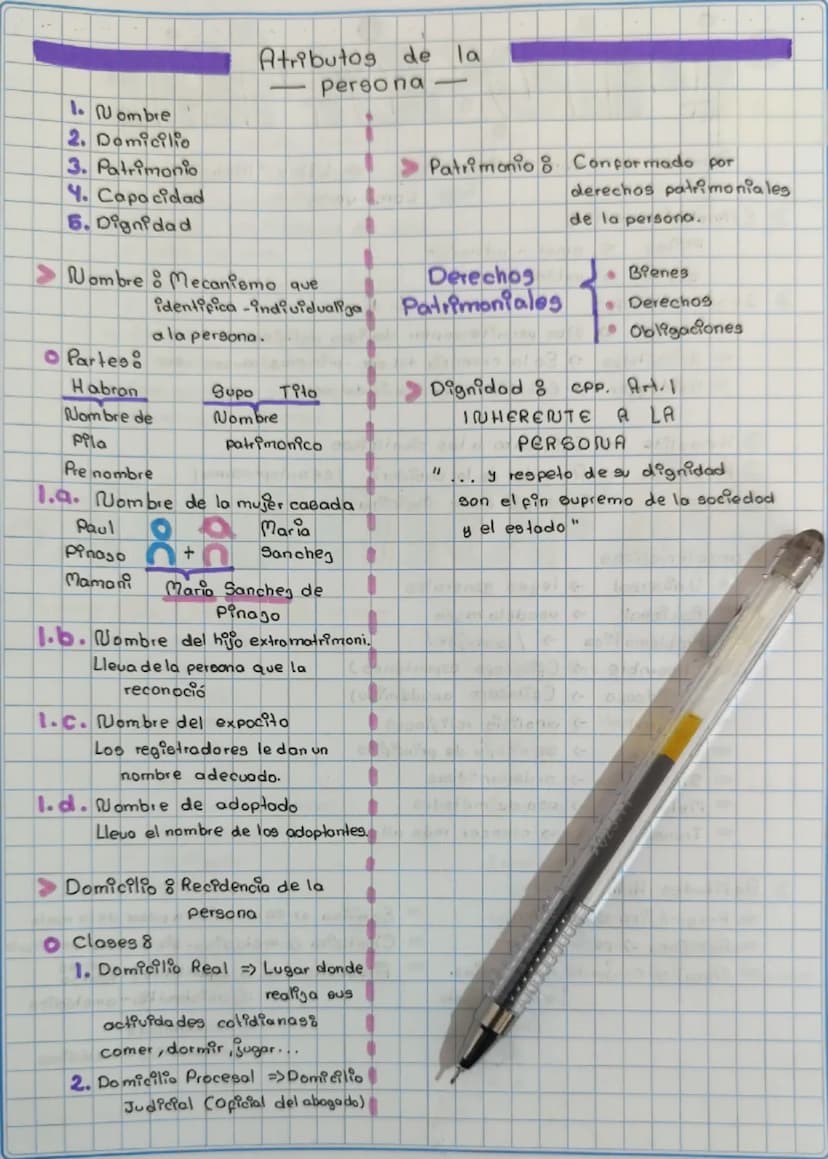 Atributos de la
— persona —
1. Nombre
2. Domicilio
3. Patrimonio
4. Capacidad
5. Dignidad
> Nombre : Mecanismo que
identifica - individualiza
a la persona.
Partes:
Habron Supo Tito
Nombre de Nombre
Pila patrimonico
Pre nombre
1.a. Nombre de la mujer casada
Paul Maria
Pinazo + Sanchez
Mamani Maria Sanchez de
Pinazo
1.b. Nombre del hijo extramatrimoni.
Lleva de la persona que la
reconoció
1.c. Nombre del expocito
Los registradores le dan un
nombre adecuado.
1.d. Nombre de adoptado
Lleva el nombre de los adoptantes.
> Domicilio : Recidencia de la
persona
Clases:
1. Domicilio Real => Lugar donde
realiza sus
actividades cotidianas:
comer, dormir, jugar...
2. Domicilio Procesal => Domicilio
Judicial (Oficial del abogado)
> Patrimonio : Conformado por
derechos patrimoniales
de la persona.
Derechos
Patrimoniales
• Bienes
• Derechos
• Obligaciones
> Dignidad : CPP. Art.1
INHERENTE A LA
PERSONA
"... y respeto de su dignidad
son el fin supremo de la sociedad
y el estado"